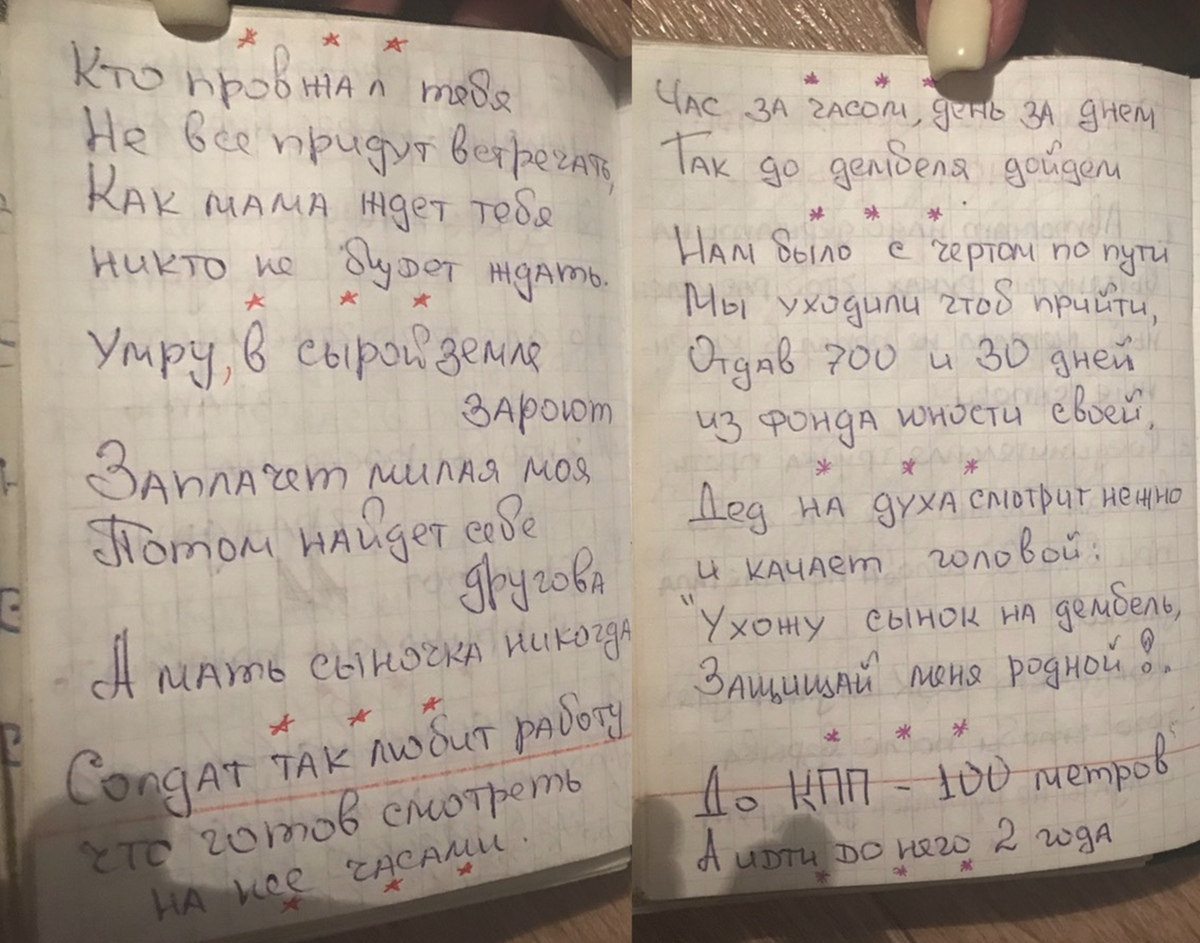 * * *
Кто провжал тебя
Не все придут встречать,
Как мама ждет тебя
никто не будет ждать.
* * *
Умру, в сырой земля
зароют
Заплачет милая моя
Потом найдет себе
другова
А мать сыночка никогда
* * *
Солдат так любит работу
что готов смотреть
на нее часами.
* * *
Час за часом, день за днем
Так до дембеля дойдем
* * *
Нам было с чертом по пути
Мы уходили чтоб прийти,
Отдав 700 и 30 дней
из фонда юности своей.
* * *
Дед на духа смотрит нежно
и качает головой:
"Ухожу сынок на дембель,
Защищай меня родной!".
* * *
До КПП - 100 метров
А идти до него 2 года
* * *